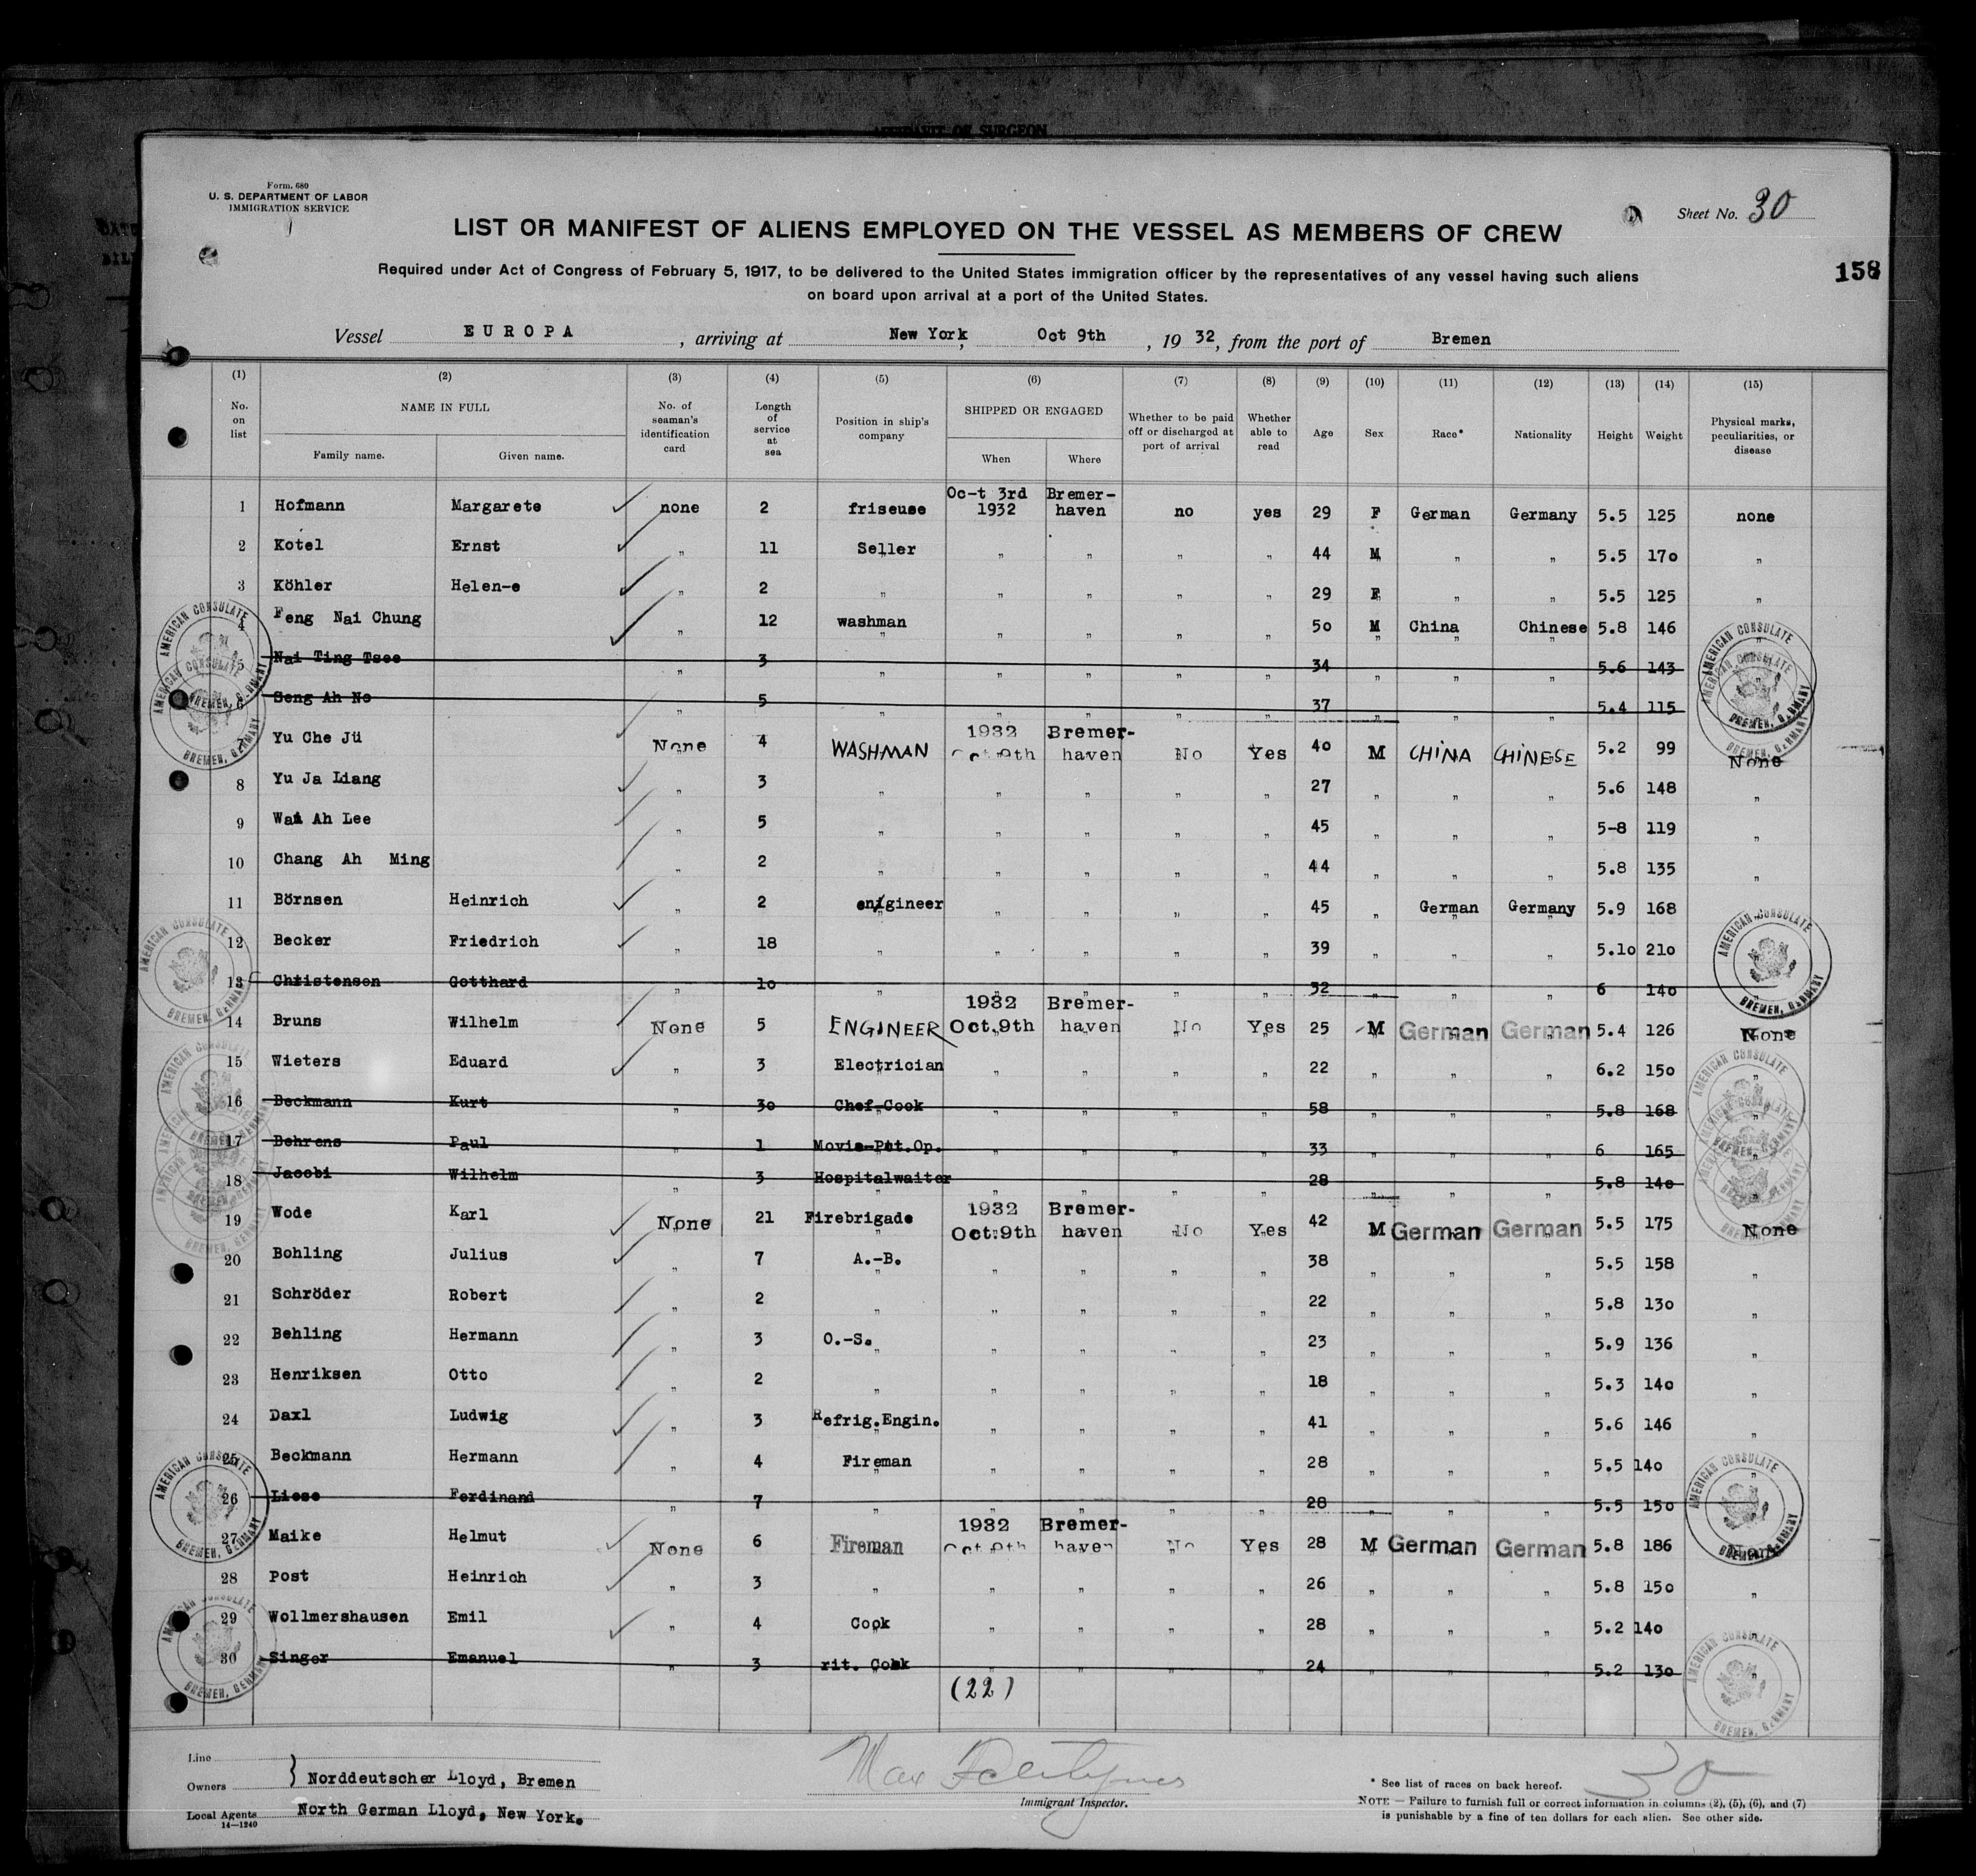 AFFIDAVIT OF SURGEON
Form. 680
U. S. DEPARTMENT OF LABOR
IMMIGRATION SERVICE
Sheet No. 30
LIST OR MANIFEST OF ALIENS EMPLOYED ON THE VESSEL AS MEMBERS OF CREW
Required under Act of Congress of February 5, 1917, to be delivered to the United States immigration officer by the representatives of any vessel having such aliens
on board upon arrival at a port of the United States.
158
Vessel EUROPA, arriving at New York, Oct 9th, 19 32, from the port of Bremen
(1) (2) (3) (4) (5) (6) (7) (8) (9) (10) (11) (12) (13) (14) (15)
No. on list NAME IN FULL Family name. Given name. No. of seaman's identification card Length of service at sea Position in ship's company SHIPPED OR ENGAGED When Where Whether to be paid off or discharged at port of arrival Whether able to read Age Sex Race* Nationality Height Weight Physical marks, peculiarities, or disease
1 Hofmann Margarete none 2 friseuse Oc-t 3rd 1932 Bremer-haven no yes 29 F German Germany 5.5 125 none
2 Kotel Ernst " 11 Seller " " " " 44 M " " 5.5 170 "
3 Köhler Helen-e " 2 " " " " " 29 F " " 5.5 125 "
4 Feng Nai Chung " 12 washman " " " " 50 M China Chinese 5.8 146 "
5 Nai Ting Tsee " 3 " " " " " 34 " " " 5.6 143 "
6 Seng Ah No " 5 " " " " " 37 " " " 5.4 115
7 Yu Che Jü None 4 WASHMAN 1932 Oct.9th Bremer-haven No Yes 40 M CHINA CHINESE 5.2 99 None
8 Yu Ja Liang " 3 " " " " " 27 " " " 5.6 148 "
9 Wai Ah Lee " 5 " " " " " 45 " " " 5-8 119 "
10 Chang Ah Ming " 2 " " " " " 44 " " " 5.8 135 "
11 Börnsen Heinrich " 2 engineer " " " " 45 " German Germany 5.9 168 "
12 Becker Friedrich " 18 " " " " " 39 " " " 5.10 210
13 Christensen Gotthard " 10 " " " " " 32 " " " 6 140
14 Bruns Wilhelm None 5 ENGINEER 1932 Oct.9th Bremer-haven No Yes 25 M German German 5.4 126 None
15 Wieters Eduard " 3 Electrician " " " " 22 " " " 6.2 150 "
16 Beckmann Kurt " 30 Chef-Cook " " " " 58 " " " 5.8 168
17 Behrens Paul " 1 Movie-Pct.Op. " " " " 33 " " " 6 165 "
18 Jacobi Wilhelm " 3 Hospitalwaiter " " " " 28 " " " 5.8 140 "
19 Wode Karl None 21 Firebrigade 1932 Oct.9th Bremer-haven No Yes 42 M German German 5.5 175 None
20 Bohling Julius " 7 A.-B. " " " " 38 " " " 5.5 158 "
21 Schröder Robert " 2 " " " " " 22 " " " 5.8 130 "
22 Behling Hermann " 3 O.-S. " " " " 23 " " " 5.9 136 "
23 Henriksen Otto " 2 " " " " " 18 " " " 5.3 140 "
24 Daxl Ludwig " 3 Refrig.Engin. " " " " 41 " " " 5.6 146 "
25 Beckmann Hermann " 4 Fireman " " " " 28 " " " 5.5 140 "
26 Liese Ferdinand " 7 " " " " " 28 " " " 5.5 150 "
27 Maike Helmut None 6 Fireman 1932 Oct.9th Bremer-haven No Yes 28 M German German 5.8 186 None
28 Post Heinrich " 3 " " " " " 26 " " " 5.8 150 "
29 Wollmershausen Emil " 4 Cook " " " " 28 " " " 5.2 140 "
30 Singer Emanuel " 3 rit. Cook " " " " 24 " " " 5.2 130 "
(22)
AMERICAN CONSULATE
BREMEN, GERMANY
Line
Owners } Norddeutscher Lloyd, Bremen
Local Agents North German Lloyd, New York.
14—1240
Max
Immigrant Inspector.
30
* See list of races on back hereof.
NOTE — Failure to furnish full or correct information in columns (2), (5), (6), and (7)
is punishable by a fine of ten dollars for each alien. See other side.